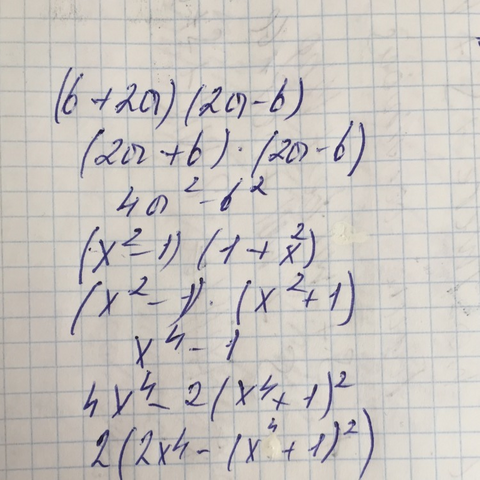 (b + 2a) (2a - b)
(2a + b) · (2a - b)
4a² - b²
(x² - 1) (1 + x²)
(x² - 1) · (x² + 1)
x⁴ - 1
4x⁴ - 2(x⁴ + 1)²
2(2x⁴ - (x⁴ + 1)²)